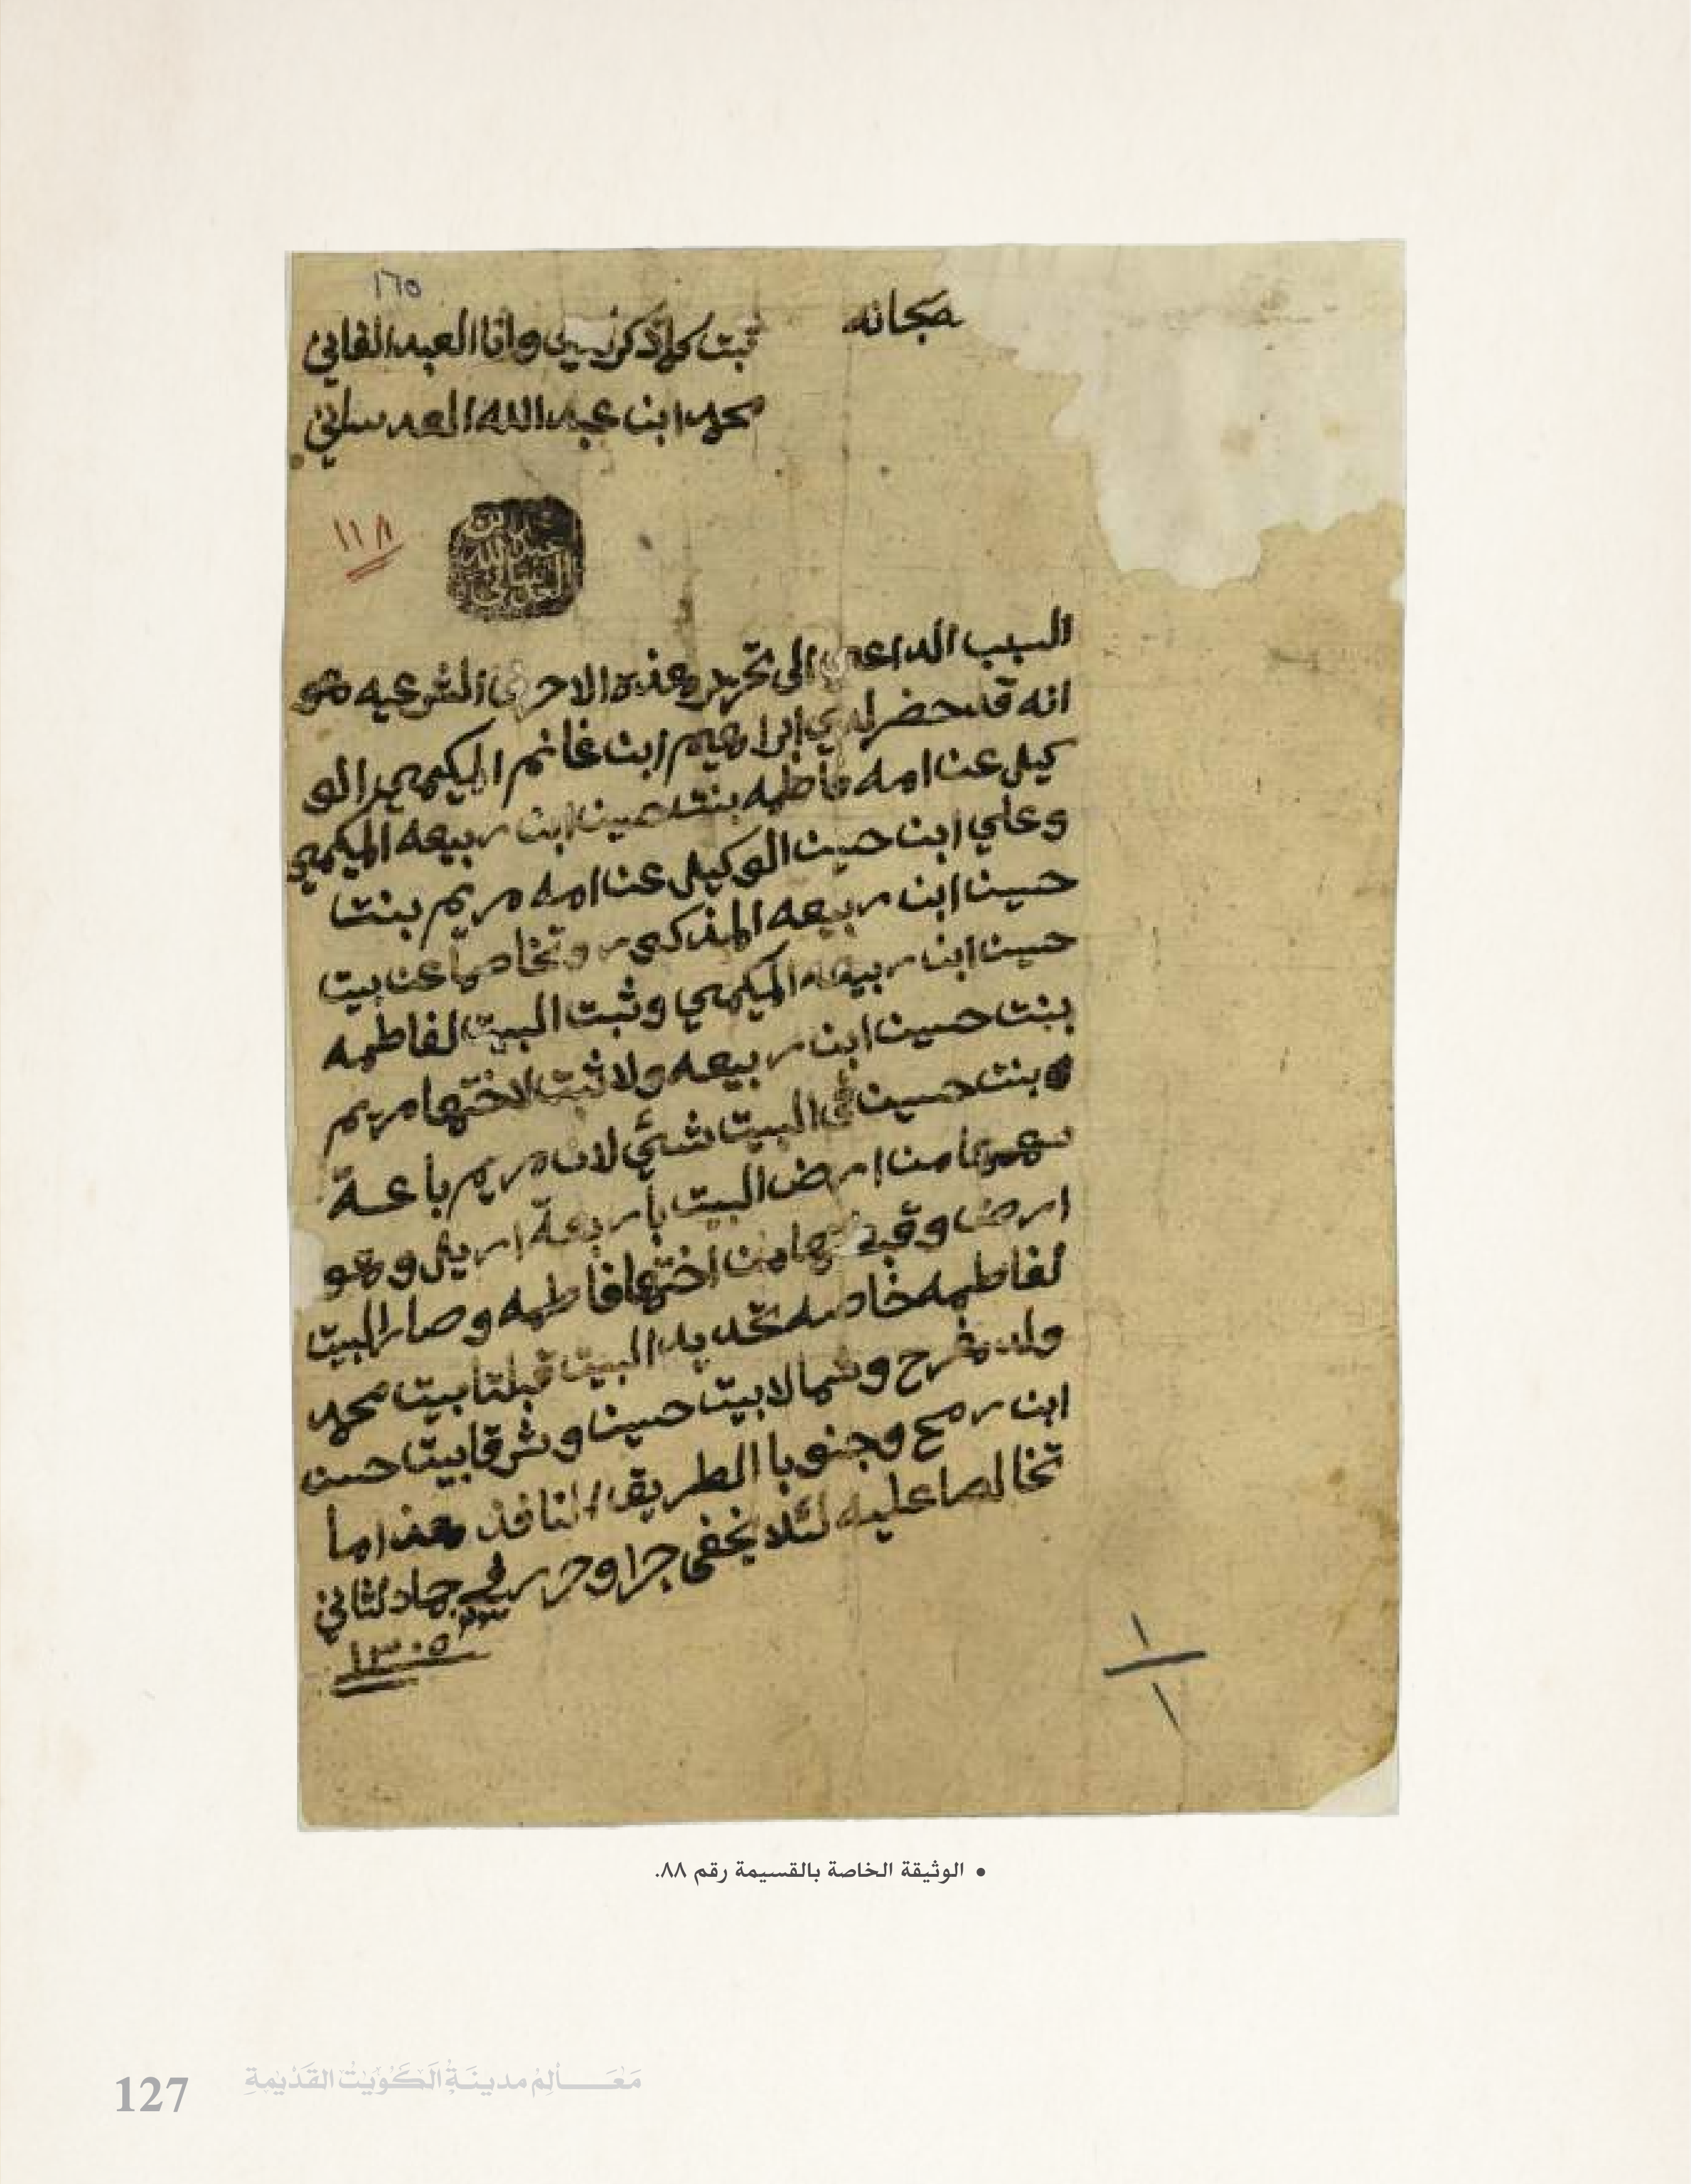 ١٦٥
ثبت كلاذكر لدي وانا العبد الفاني
محمد ابن عبد الله العدساني
١١٨
السبب الداعي الى تحرير هذه الاحرف الشرعيه هو
انه قد حضر لدي ابراهيم ابن غانم الميكمي الو
كيل عن امه فاطمه بنت حسين ابن ربيعه الميكمي
وعلي ابن حسين الوكيل عن امه مريم بنت
حسين ابن ربيعه المذكور وتخاصما عن بيت
حسين ابن ربيعه الميكمي وثبت البيت لفاطمه
بنت حسين ابن ربيعه ولا ثبت لاختها مريم
بنت حسين في البيت شئ لان مريم باعة
سهمها من ارض البيت بأربعة اريل وهو
ارض وقبضتها من اختها فاطمه وصار البيت
لفاطمه خاصه تحديد البيت قبلتا بيت محمد
ولد مفرح وشمالا بيت حسين وشرقا بيت حسن
ابن رمح وجنوبا الطريق النافذ هذا ما
تخالصا عليه لئلا يخفى جرا وحرر في جماد لثاني
سنة ١٣٠٥
١
١
• الوثيقة الخاصة بالقسيمة رقم ٨٨.
127 مَعَـــالِمُ مدينَـةُ الكُوَيْتُ القَدِيْمَةِ